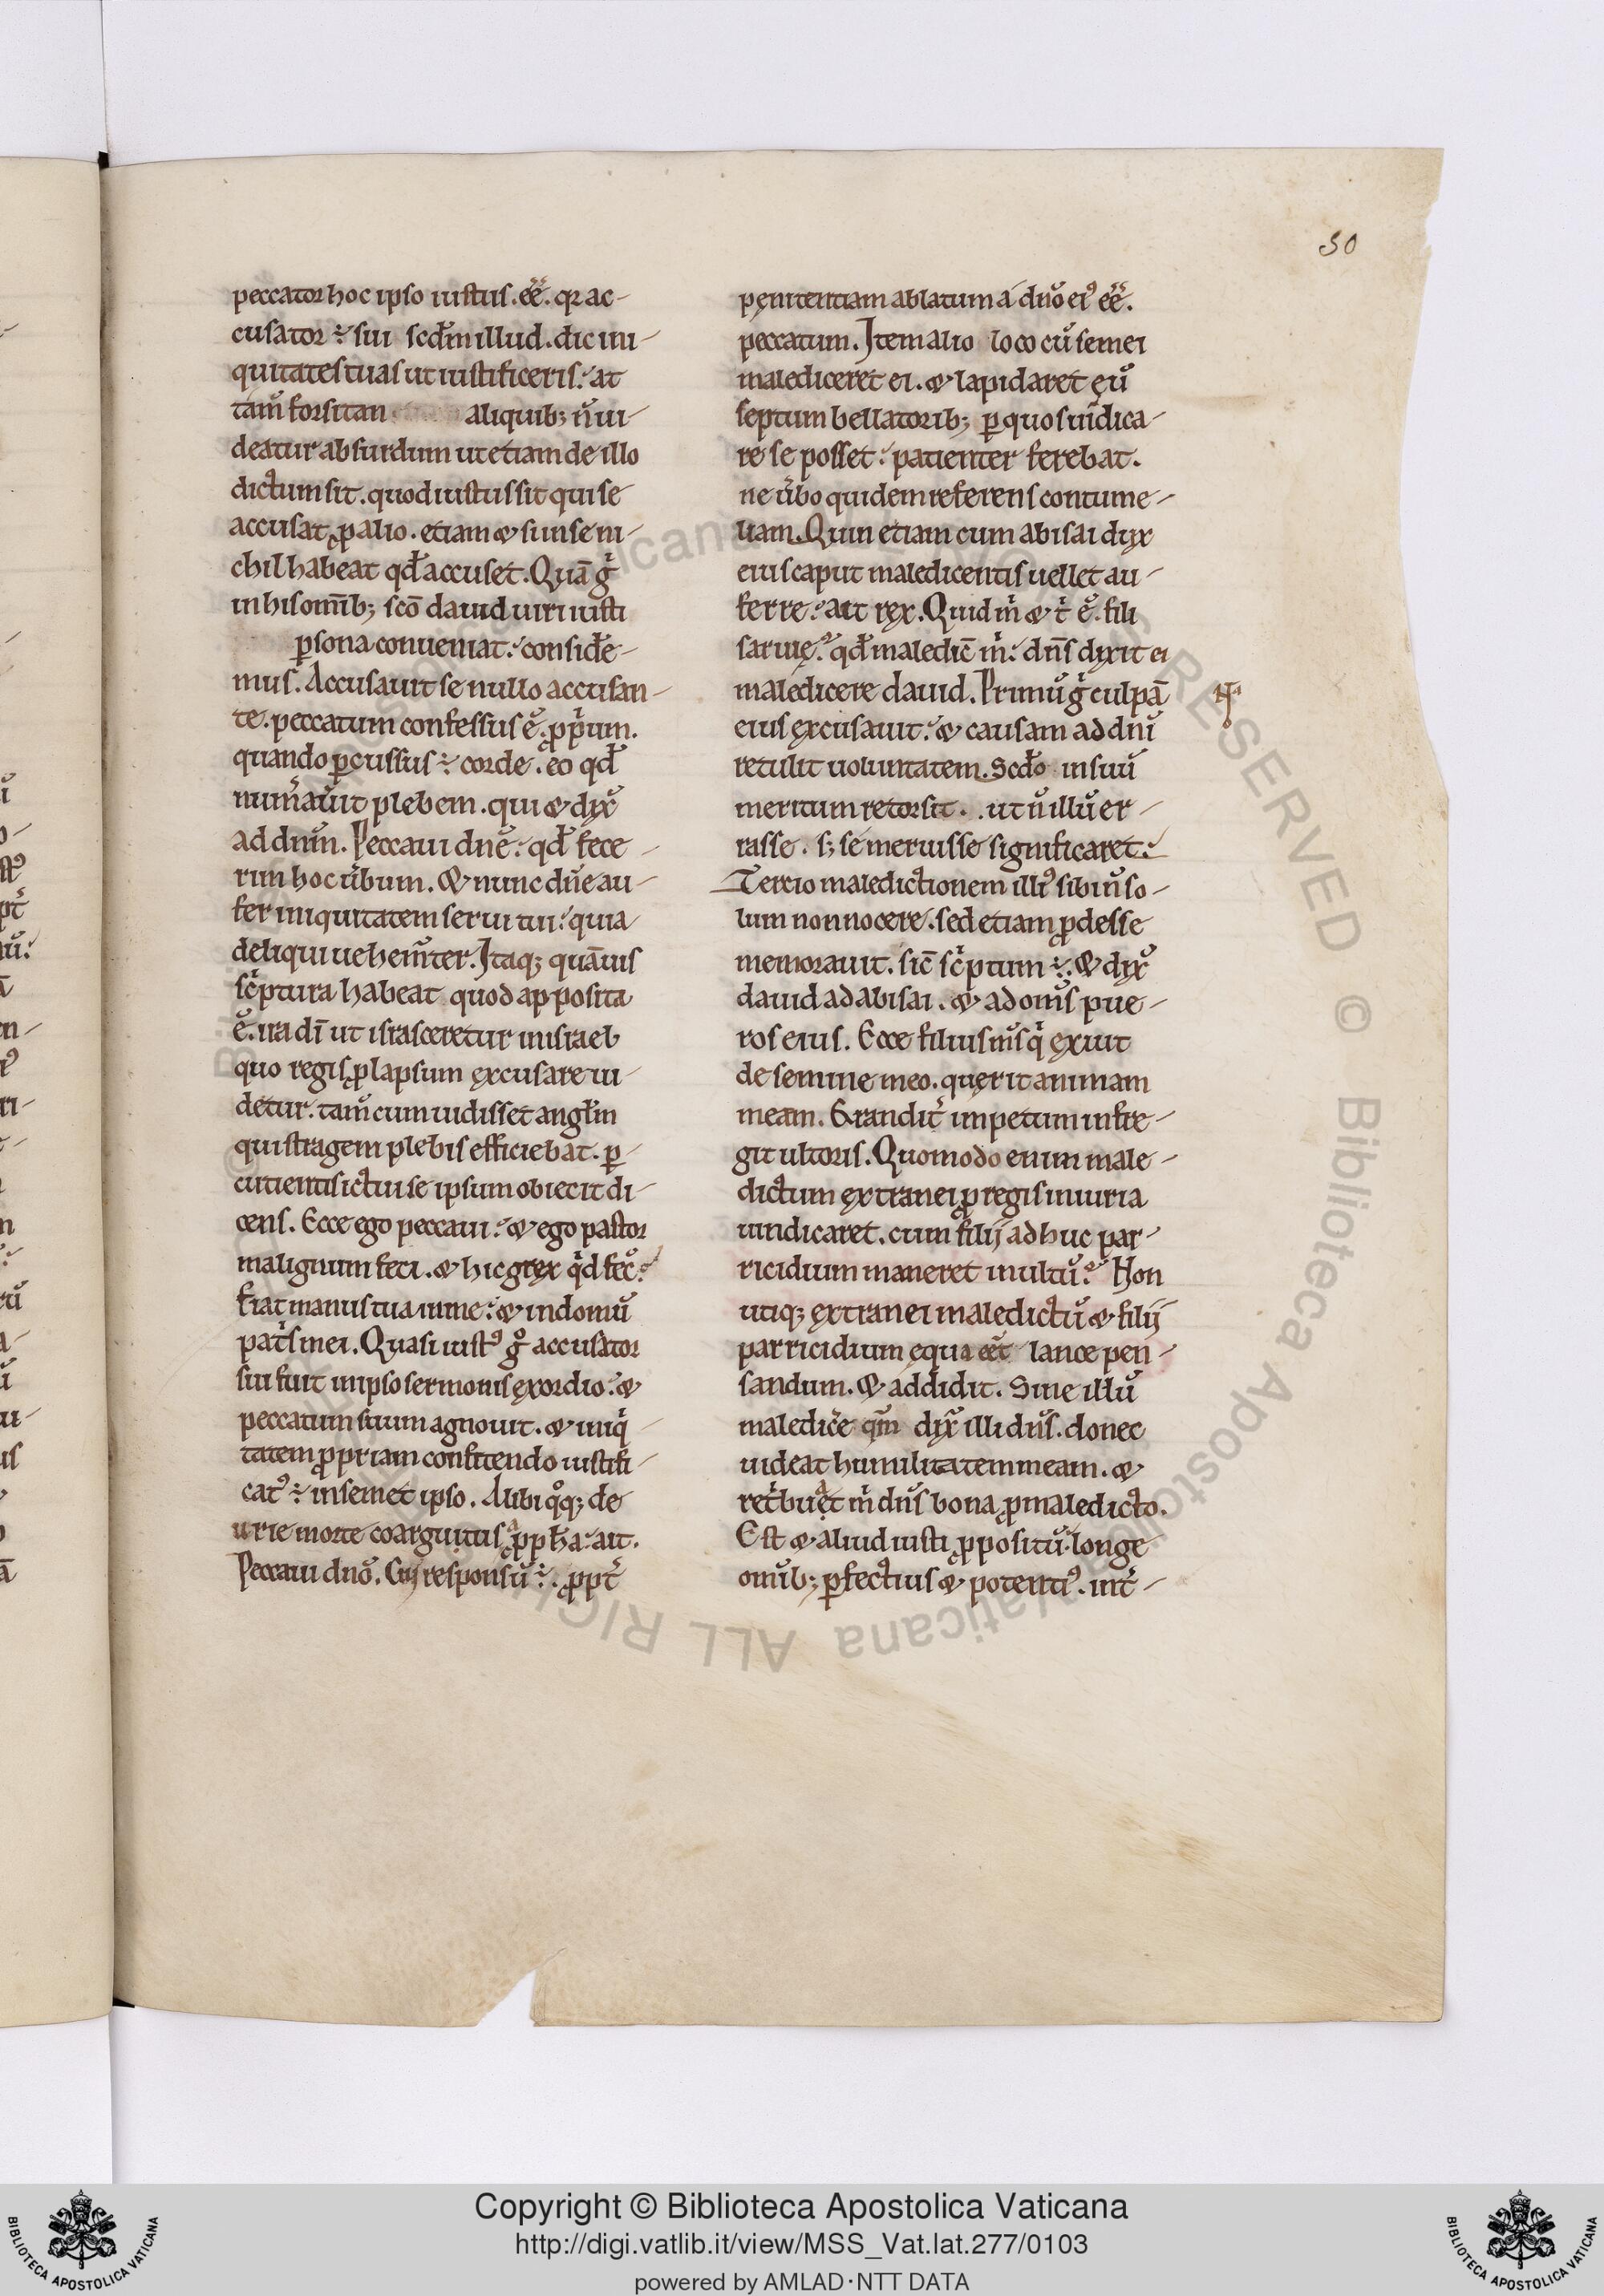 30
peccator hoc ipso iustus. eē. qr ac-
cusator ÷ sui scdm̄ illud. dic ini-
quitates tuas ut iustificeris. at
tam̄ forsitan aliquib; n̄ ui-
deatur absurdum ut etiam de illo
dictum sit. quod iustus sit qui se
accusat ꝓ alio. etiam & si in se ni-
chil habeat qd̄ accuset. Quā gͥ
in his om̄ib; sc̄o dauid uiri iusti
ꝑsona conueniat. conside̅-
mus. Accusauit se nullo accusan-
te. peccatum confessus ē. ꝓpͥum.
quando ꝑcussus ÷ corde. eo qd̄
num̄auit plebem. qui & dix̄
ad dnm̄. Peccaui dn̄e. qd̄ fece-
rim hoc ūbum. & nunc dn̄e au-
fer iniquitatem serui tui. quia
deliqui uehem̄ter. Itaq; quāuis
sc̄ptura habeat quod apposita
ē. ira dī ut irasceretur in israel
quo regis ꝓlapsum excusare ui-
detur. tam̄ cum uidisset angl̄m
qui stragem plebis efficiebat. ꝑ-
cutientis ictui se ipsum obiecit di-
cens. Ecce ego peccaui. & ego pastor
malignum feci. & hic grex qͥd fec̄.
fiat manus tua in me. & in domū
patͥs mei. Quasi iustꝰ gͦ accusator
sui fuit in ipso sermonis exordio. &
peccatum suum agnouit. & iniqͥ-
tatem ꝓpriam confitendo iustifi-
catꝰ ÷ in semet ipso. Alibi qͦq; de
urie morte coarguitus a ꝓpha. ait.
Peccaui dn̄o. Cuj responsū ÷. ꝓpt̄
pęnitentiam ablatum a dn̄o eiꝰ eē.
peccatum. Item alio loco cū semei
malediceret ei. & lapidaret eū
septum bellatorib; ꝑ quos uīdica-
re se posset. patienter ferebat.
ne ūbo quidem referens contume-
liam. Quin etiam cum abisai dux
eius caput maledicentis uellet au-
ferre. ait rex. Quid mͥ & tͥ ē. fili
saruię. qd̄ maledic̄ mͥ. dn̄s dixit ei
maledicere dauid. Primū gͥ culpā
eius excusauit. & causam ad dnī
retulit uoluntatem. Scd̄o in suū
meritum retorsit. ut n̄ illū er-
rasse. s; se meruisse significaret.
Tercio maledictionem illiꝰ sibi n̄ so-
lum non nocere. sed etiam ꝓdesse
memorauit. sic̄ sc̄ptum ÷. & dix̄
dauid ad abisai. & ad om̄s pue-
ros eius. Ecce filius m̄s qͥ exiuit
de semine meo. querit animam
meam. Grandit̄ impetum infre-
git ultoris. Quomodo enim male-
dictum extranei ꝓ regis iniuria
uindicaret. cum filij adhuc par-
ricidium maneret inultū. Non
utiq; extranei maledictū & filij
parricidium equa eēt lance pen-
sandum. & addidit. Sine illū
maledice̅ qm̄ dix̄ illi dn̄s. donec
uideat humilitatem meam. &
ret̄buet mͥ dn̄s bona ꝓ maledicto.
Est & aliud iusti ꝓpositū. longe
om̄ib; ꝑfectius & potentiꝰ. int̄-
Copyright © Biblioteca Apostolica Vaticana
http://digi.vatlib.it/view/MSS_Vat.lat.277/0103
powered by AMLAD·NTT DATA
BIBLIOTECA APOSTOLICA VATICANA
BIBLIOTECA APOSTOLICA VATICANA